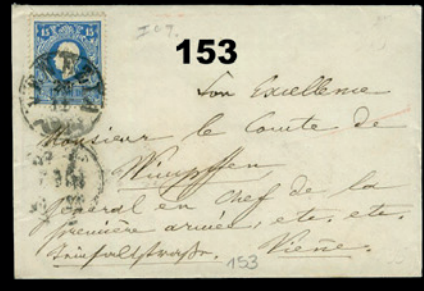 15 15
I C 9.
153
Son Excellence
Monsieur le Comte de
Wimpffen
général en chef de la
première armée, etc. etc.
Vienne.
153